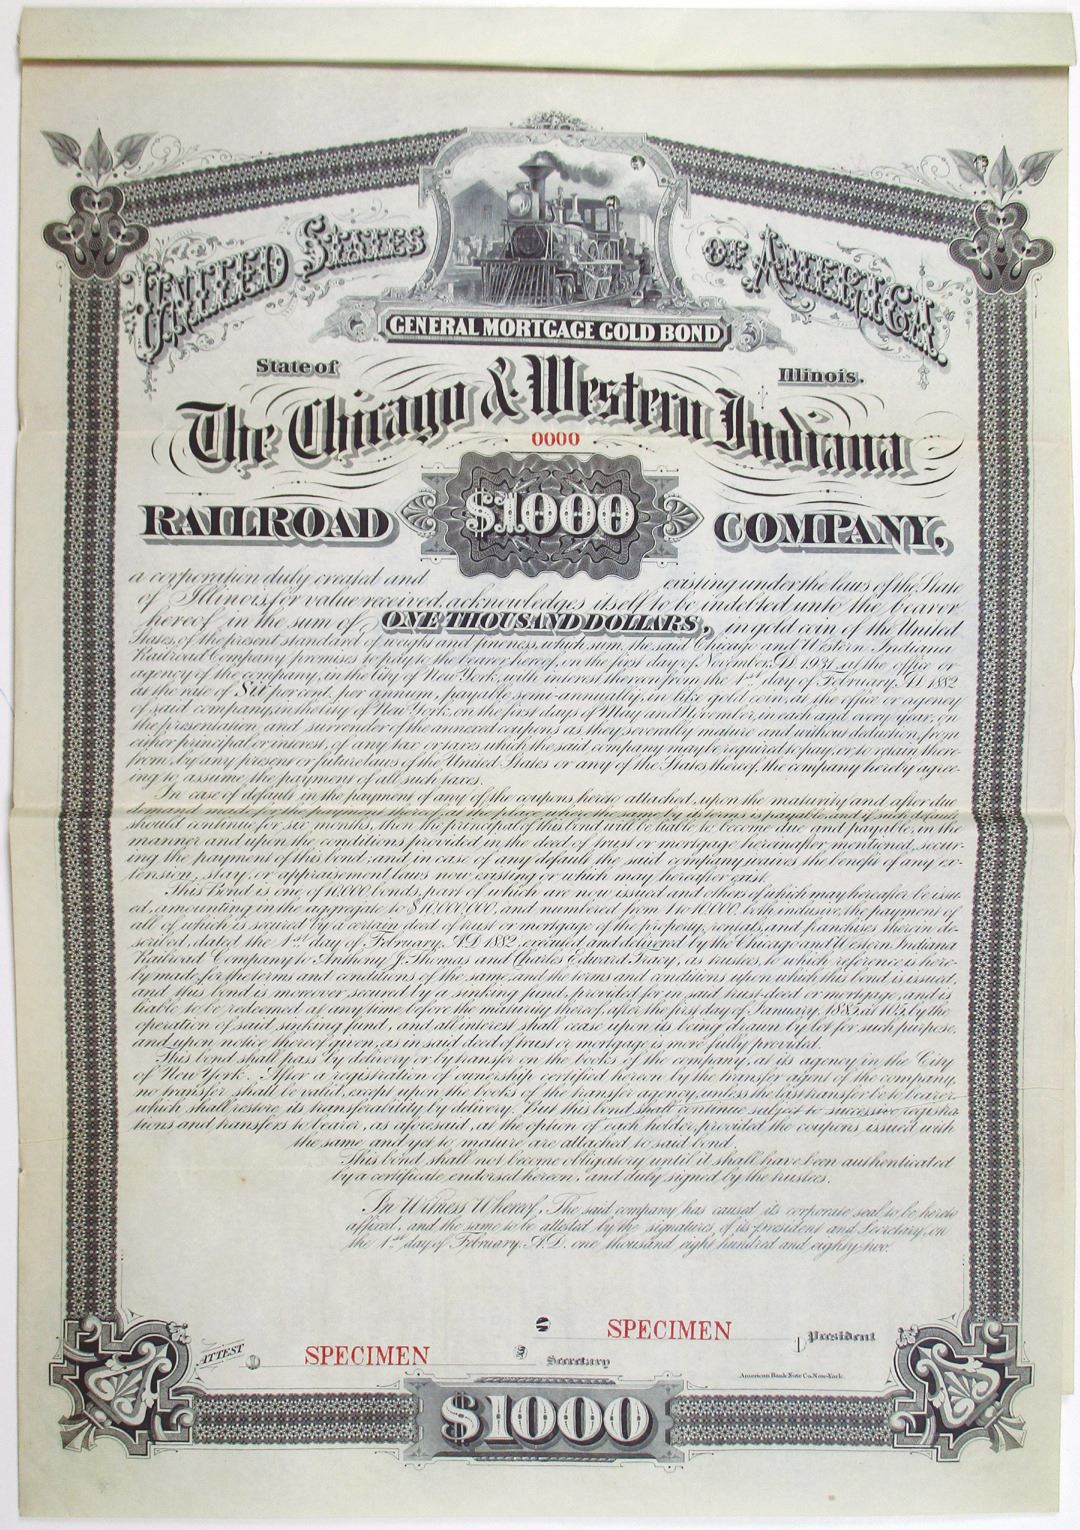 UNITED STATES OF AMERICA.
GENERAL MORTGAGE GOLD BOND
State of Illinois.
The Chicago & Western Indiana
0000
RAILROAD $1000 COMPANY,
a corporation duly created and existing under the laws of the State
of Illinois, for value received, acknowledges itself to be indebted unto the bearer
hereof, in the sum of, ONE THOUSAND DOLLARS, in gold coin of the United
States, of the present standard of weight and fineness, which sum, the said Chicago and Western Indiana
Railroad Company promises to pay to the bearer hereof, on the first day of November, A.D. 1931, at the office or
agency of the company, in the City of New York, with interest thereon from the 1st day of February, A.D. 1882
at the rate of Six per cent. per annum, payable semi-annually, in like gold coin, at the office or agency
of said company, in the City of New York, on the first days of May and November, in each and every year, on
the presentation and surrender of the annexed coupons as they severally mature and without deduction, from
either principal or interest, of any tax or taxes which the said company may be required to pay, or to retain there-
from, by any present or future laws of the United States or any of the States thereof, the company hereby agree-
ing to assume the payment of all such taxes.
In case of default in the payment of any of the coupons hereto attached, upon the maturity and after due
demand made for the payment thereof, at the place where the same by its terms is payable, and if such default
should continue for six months, then the principal of this bond will be liable to become due and payable, in the
manner and upon the conditions provided in the deed of trust or mortgage hereinafter mentioned, secur-
ing the payment of this bond; and in case of any default the said company waives the benefit of any ex-
tension, stay, or appraisement laws now existing or which may hereafter exist.
This Bond is one of 10,000 bonds, part of which are now issued and others of which may hereafter be issu-
ed, amounting in the aggregate to $10,000,000, and numbered from 1 to 10,000, both inclusive, the payment of
all of which is secured by a certain deed of trust or mortgage of the property, rentals, and franchises therein de-
scribed, dated the 1st day of February, A.D. 1882, executed and delivered by the Chicago and Western Indiana
Railroad Company to Anthony J. Thomas and Charles Edward Tracy, as trustees, to which reference is here-
by made, for the terms and conditions of the same, and the terms and conditions upon which this bond is issued,
and this bond is moreover secured by a sinking fund, provided for in said trust-deed or mortgage, and is
liable to be redeemed at any time, before the maturity thereof, after the first day of January, 1885, at 105, by the
operation of said sinking fund, and all interest shall cease upon its being drawn by lot for such purpose,
and upon notice thereof given, as in said deed of trust or mortgage is more fully provided.
This bond shall pass by delivery or by transfer on the books of the company, at its agency, in the City
of New York. After a registration of ownership certified hereon by the transfer agent of the company,
no transfer shall be valid, except upon the books of the transfer agency, unless the last transfer be to bearer,
which shall restore its transferability by delivery. But this bond shall continue subject to successive registra-
tions and transfers to bearer, as aforesaid, at the option of each holder, provided the coupons issued with
the same and yet to mature are attached to said bond.
This bond shall not become obligatory until it shall have been authenticated
by a certificate, endorsed hereon, and duly signed by the trustees.
In Witness Whereof, The said company has caused its corporate seal to be hereto
affixed, and the same to be attested by the signatures of its president and Secretary, on
the 1st day of February, A.D. one thousand eight hundred and eighty-two.
SPECIMEN President
ATTEST SPECIMEN Secretary
American Bank Note Co. New-York.
$1000